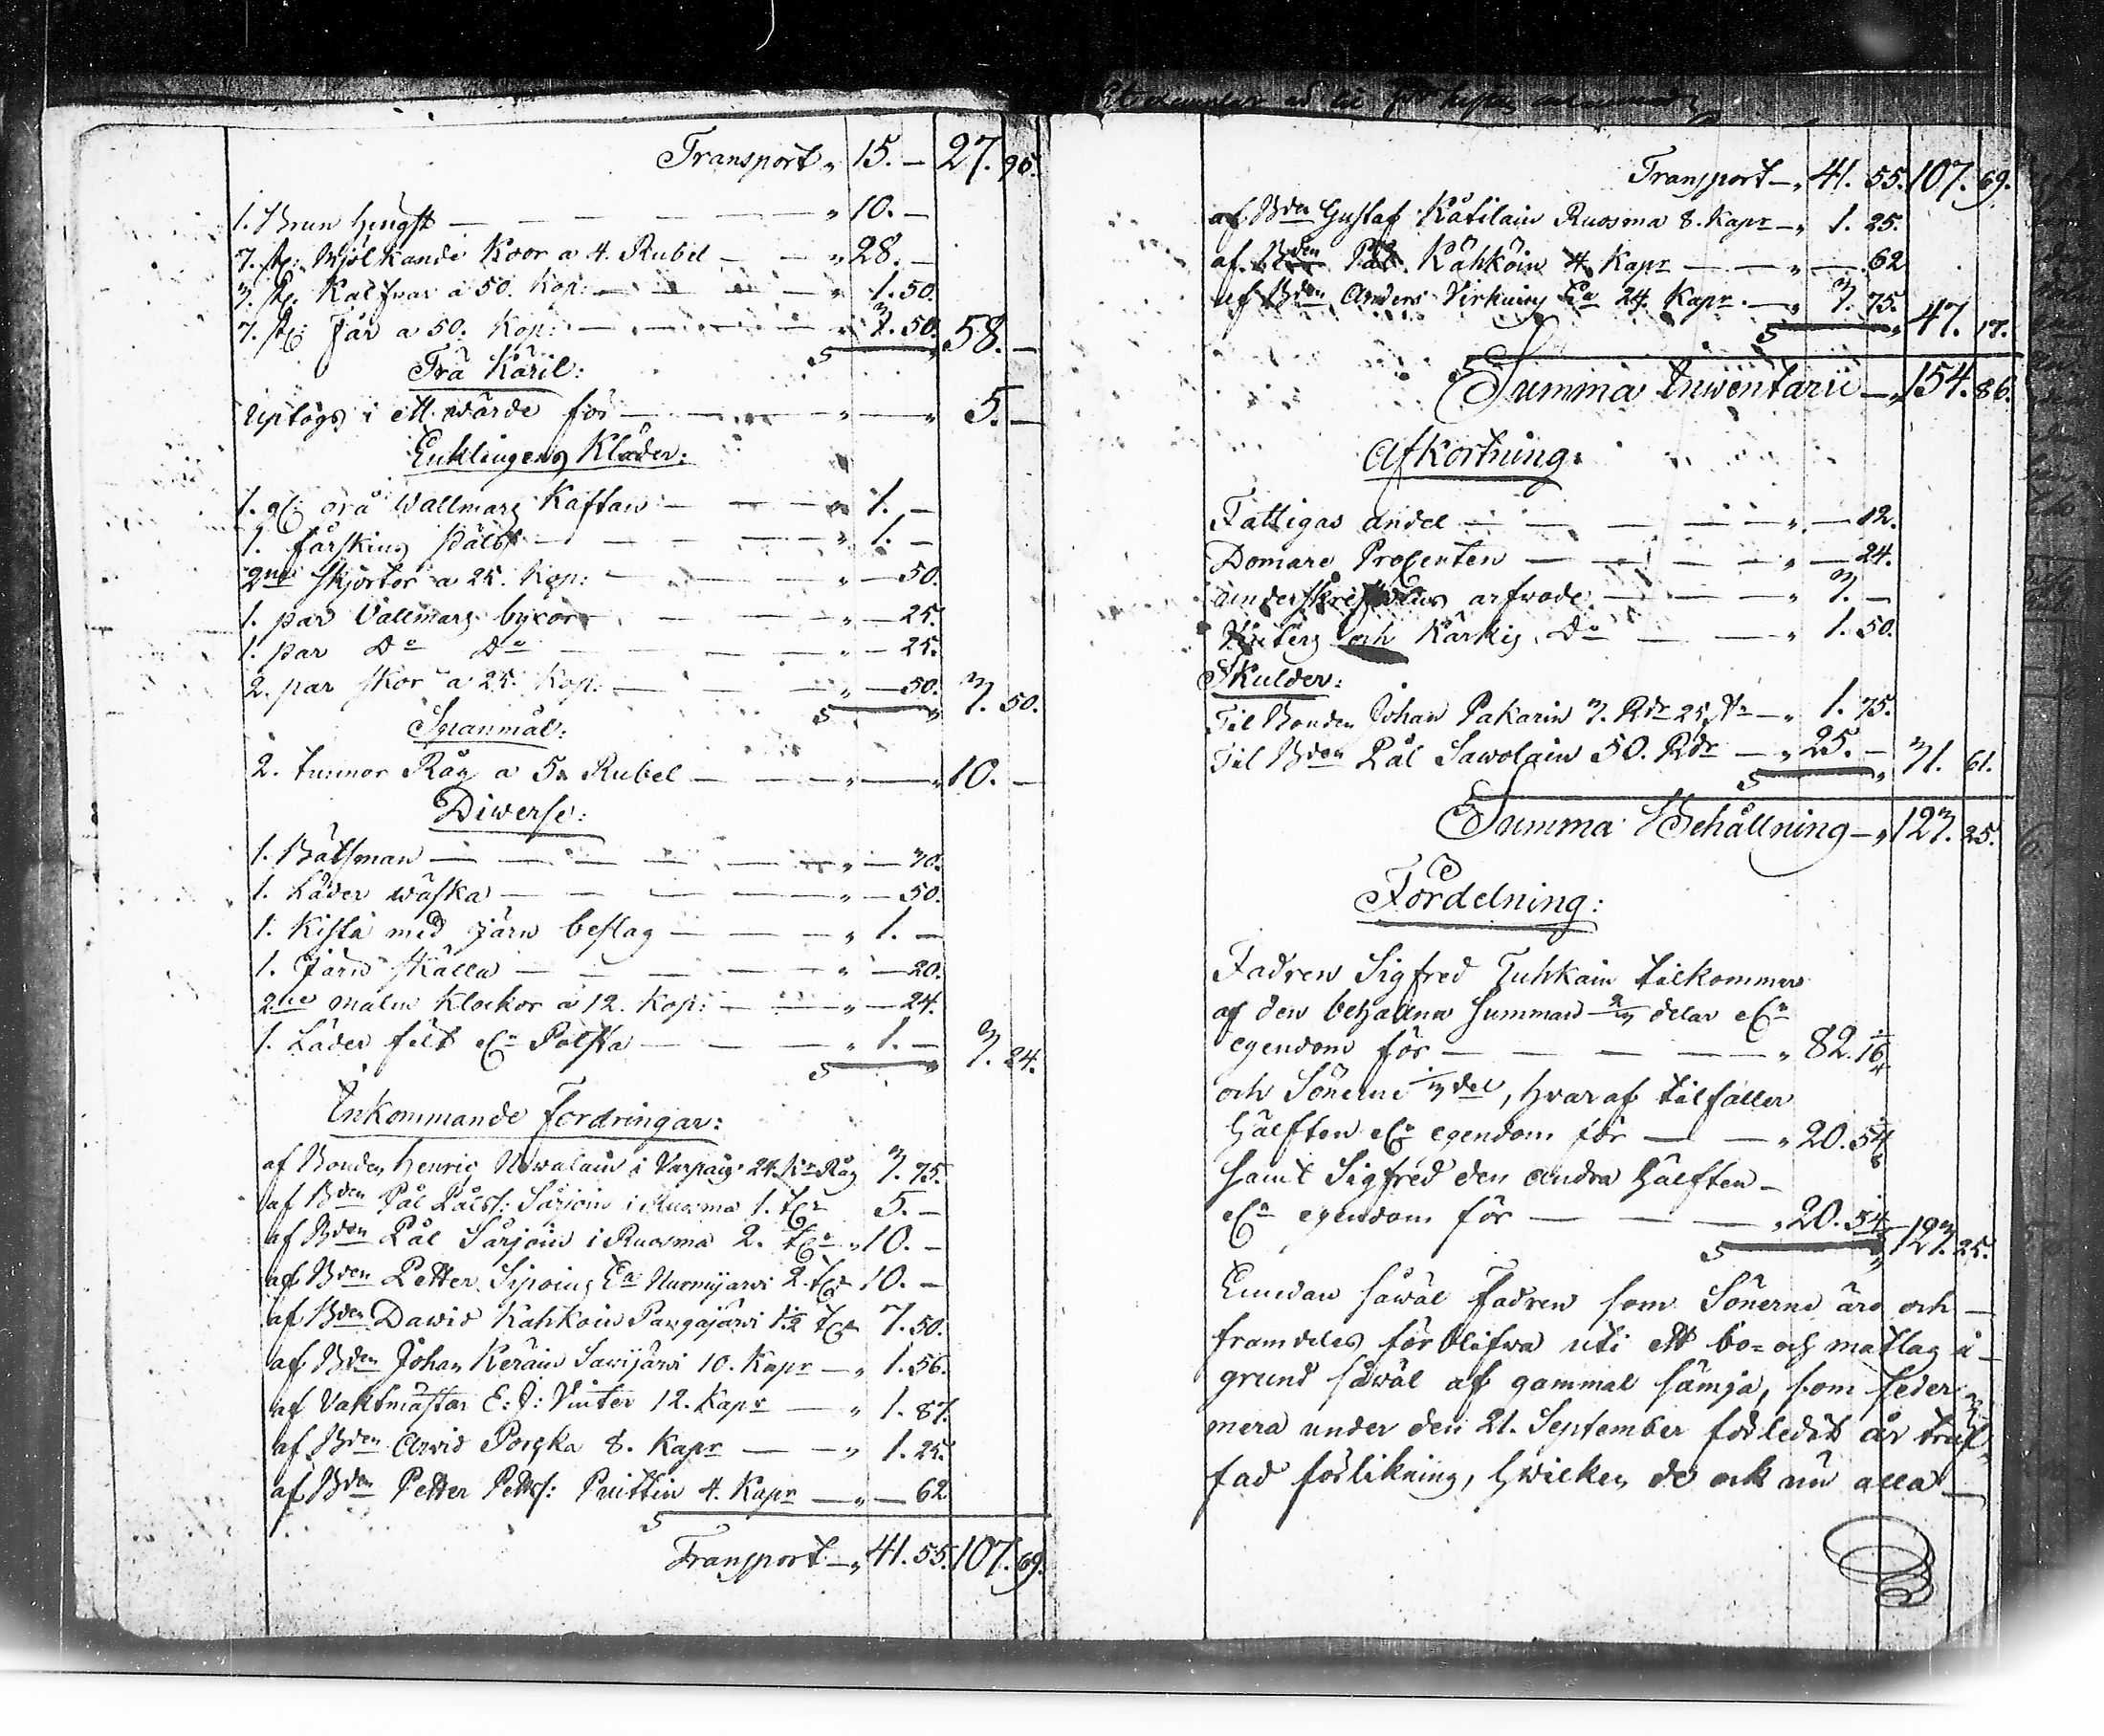 Transport " 15. — 27. 95.
1. Brun Hingst — " 10. —
7. st: Mjölkande Koor a 4. Rubel — " 28. —
3. st: Kalfvar a 50. Kop: — " 1. 50.
7. st: Får a 50. Kop: — " 3. 50. 58. —
Trä Käril:
Uptogs i ett wärde för — " — " 5. —
Enklingens Kläder:
1. st: Wallmars Kaftan — " 1. —
1. fårskins Pälts — " 1. —
2ne Skjortor a 25. Kop: — " — 50.
1. par Vallmars byxor — " — 25.
1. par Do Do — " — 25.
2. par skor a 25. Kop: — " — 50. 3. 50.
Spanmål:
2. tunnor Råg a 5. Rubel — " — " 10. —
Diwerse:
1. Båtsman — " — 30.
1. Läder wäska — " — 50.
1. Kista med järn beslag — " 1. —
1. Järn skälla — " — 20.
2ne malm Klockor a 12. Kop: — " — 24.
1. Läder fält Påska — " 1. — 3. 24.
Inkommande Fordringar:
af Bonden Henric i Varpais 24. Kr Råg 3. 75.
af Bden Pål Pålss: Särjöin i Ruosma 1. 5. —
af Bden Pål Särjöin i Ruosma 2. " 10. —
af Bden Petter Siposius Nurmijärwi 2. 10. —
af Bden Dawid Kähköin Pangajärwi 1½ 7. 50.
af Bden Johan Keräin Sawijärwi 10. Kapr — " 1. 56.
af Vaktmästar E: J: Vinter 12. Kapr — " 1. 87.
af Bden Arvid Porska 8. Kapr — " 1. 25.
af Bden Petter Petterss: Puittin 4. Kapr — " — 62
Transport — " 41. 55. 107. 69.
Transport — " 41. 55. 107. 69.
af Bden Gustaf Kätilain Ruosma 8. Kapr — " 1. 25.
af Bden Pål Kähköin 4. Kapr — " — 62
af Bden Anders Virkuin 24. Kapr — " 3. 75. 47. 17.
Summa Inwentarii — " 154. 86.
Afkortning:
Fattigas andel — " — 12.
Domare Procenten — " — 24.
Underskrefvetens arfvode — " 3. —
och Kärkis Do — " 1. 50.
Skulder:
Til Bonden Johan Pakarin 3. Rdr 25 — " 1. 75.
Til Bden Pål Sawolain 50. Rdr — " 25. — 31. 61.
Summa Behållning — " 123. 25.
Fördelning:
Fadren Sigfred Tuhkain tilkommer
af den behallna Summan 2/3 delar
egendom för — " 82. 16
och Sönerne 1/3 del, hvaraf tilfaller
Hälften egendom för — " 20. 54
samt Sigfred den andra Hälften —
egendom för — " 20. 54 123. 25.
Emedan såwäl Fadren som Sönerne äro och —
framdeles förblifwa uti ett bo= och matlag i —
grund såwäl af gammal sämja, som seder
mera under den 21. September förledit år träf
fad förlikning, hwilken de ock nu alla —